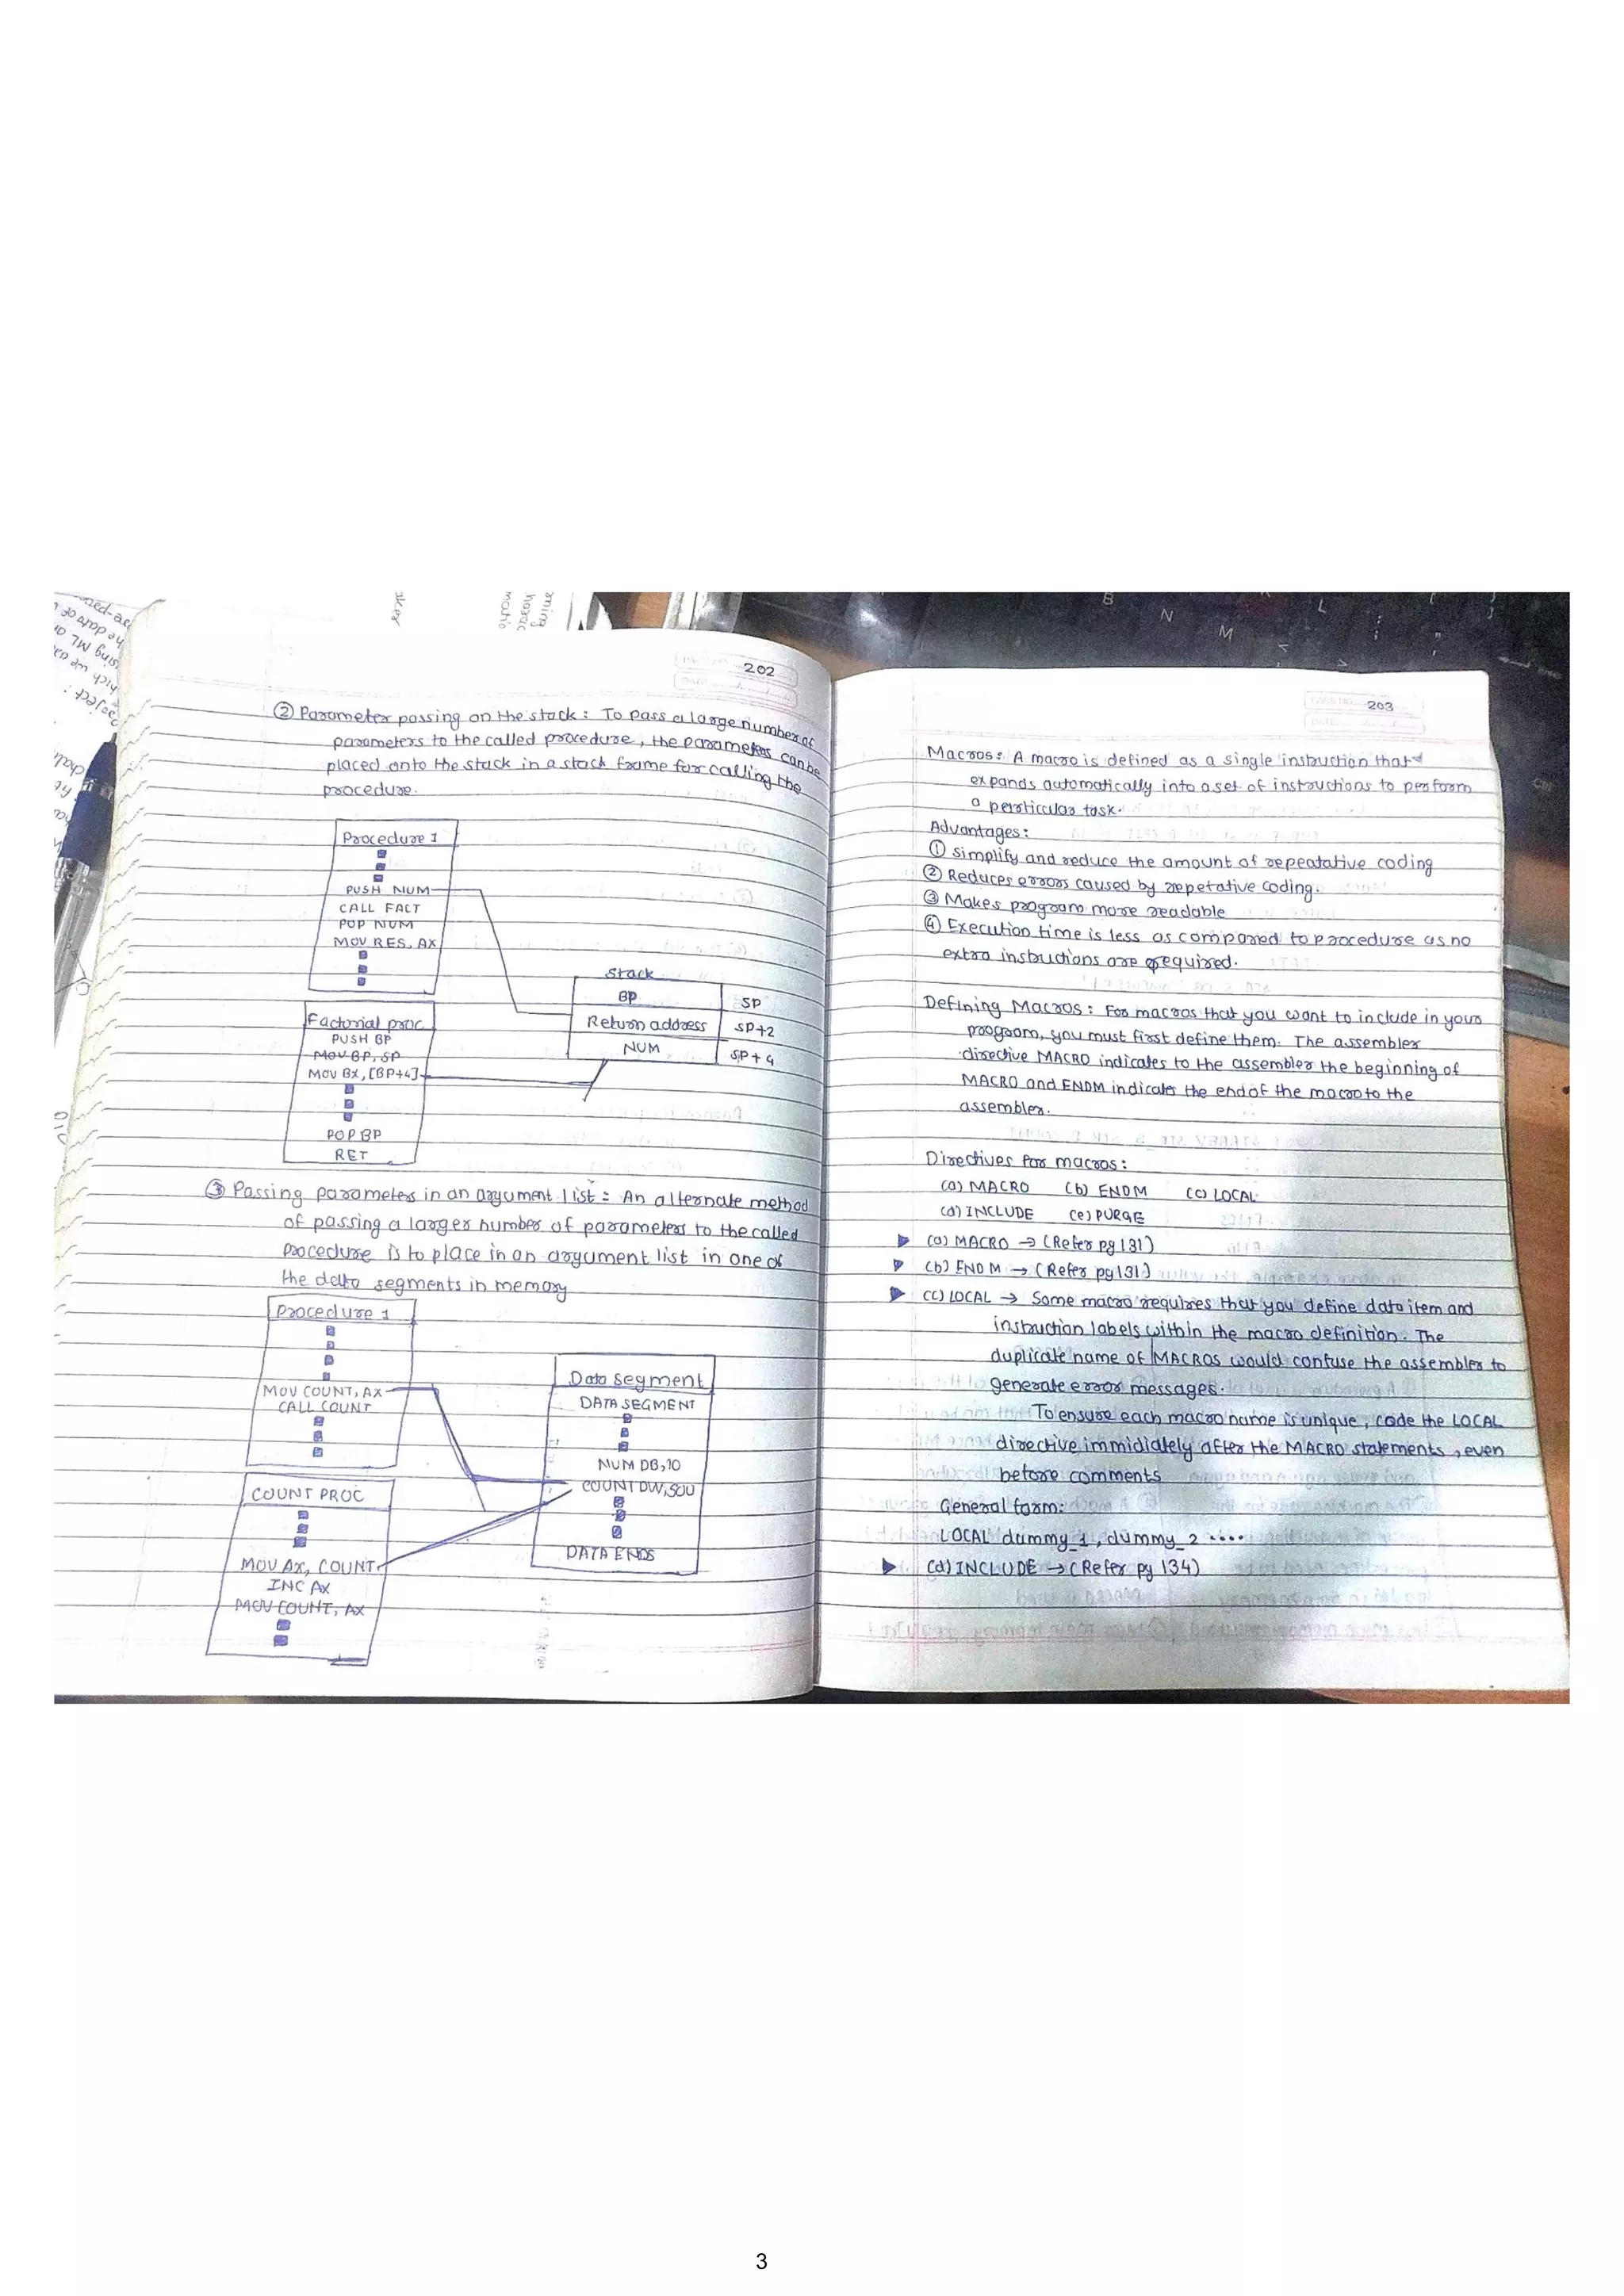 202
② Parameter passing on the stack : To pass a large number of
parameters to the called procedure, the parameters can be
placed onto the stack in a stack frame for calling the
procedure.
Procedure 1
PUSH NUM
CALL FACT
POP NUM
MOV RES, AX
Stack
BP SP
Return address SP+2
NUM SP+4
Factorial proc
PUSH BP
MOV BP, SP
MOV BX, [BP+4]
POP BP
RET
③ Passing parameters in an argument list : An alternate method
of passing a larger number of parameters to the called
procedure is to place in an argument list in one of
the data segments in memory
Procedure 1
MOV COUNT, AX
CALL COUNT
Data Segment
DATA SEGMENT
NUM DB,10
COUNT DW,500
DATA ENDS
COUNT PROC
MOV AX, COUNT
INC AX
MOV COUNT, AX
203
Macros : A macro is defined as a single instruction that
expands automatically into a set of instructions to perform
a perticular task.
Advantages :
① Simplify and reduce the amount of repeatative coding
② Reduces errors caused by repetative coding.
③ Makes program more readable
④ Execution time is less as compared to procedure as no
extra instructions are required.
Defining Macros : For macros that you want to include in your
program, you must first define them. The assembler
directive MACRO indicates to the assembler the beginning of
MACRO and ENDM indicates the end of the macro to the
assembler.
Directives for macros :
(a) MACRO (b) ENDM (c) LOCAL
(d) INCLUDE (e) PURGE
(a) MACRO → (Refer pg 131)
(b) ENDM → (Refer pg 131)
(c) LOCAL → Some macro requires that you define data item and
instruction labels within the macro definition. The
duplicate name of MACROS would confuse the assembler to
generate error messages.
To ensure each macro name is unique, code the LOCAL
directive immidiately after the MACRO statements, even
before comments
General form:
LOCAL dummy_1, dummy_2 ....
(d) INCLUDE → (Refer pg 134)
3